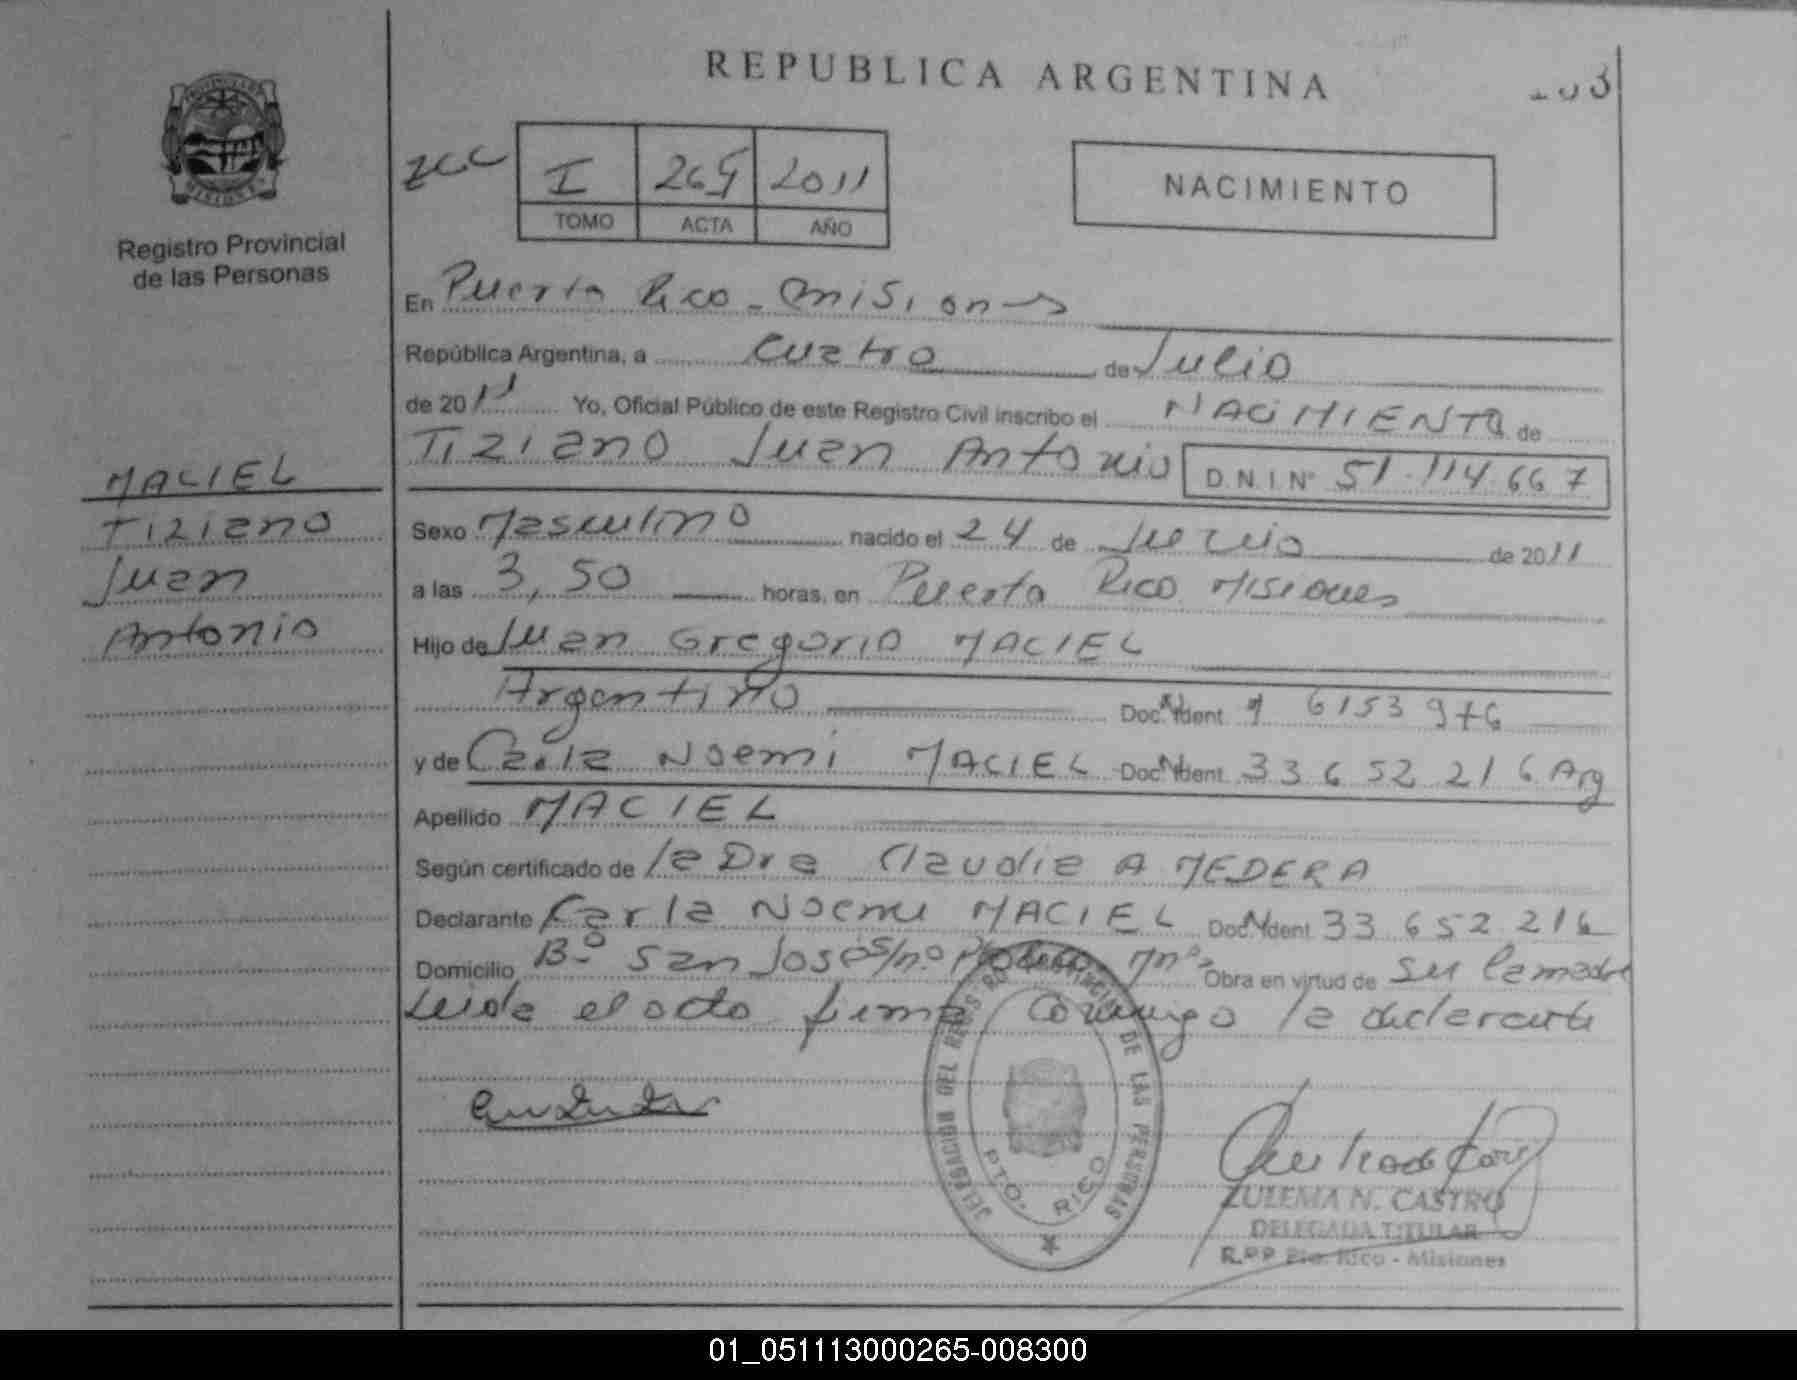 REPUBLICA ARGENTINA
I 265 2011
TOMO ACTA AÑO
NACIMIENTO
Registro Provincial
de las Personas
MACIEL
Tiziano
Juan
Antonio
En Puerto Rico - Misiones
República Argentina, a cuatro de Julio
de 2011 Yo, Oficial Público de este Registro Civil inscribo el NACIMIENTO de
Tiziano Juan Antonio D.N.I.Nº 51.114.667
Sexo Masculino nacido el 24 de Junio de 2011
a las 3,50 horas, en Puerto Rico Misiones
Hijo de Juan Gregorio MACIEL
Argentino Doc. Ident
y de Carla Noemi MACIEL Doc. Ident 33 652 216 Arg
Apellido MACIEL
Según certificado de la Dra Claudia A MEDERA
Declarante Carla Noemi MACIEL Doc. Ident 33 652 216
Domicilio Bº San José s/nº Obra en virtud de ser la madre
Leida el acta firma conmigo la declarante
DELEGACION DEL REGISTRO PROVINCIAL DE LAS PERSONAS
PTO. RICO
ZULEMA N. CASTRO
DELEGADA TITULAR
R.P.P Pto. Rico - Misiones
01_051113000265-008300